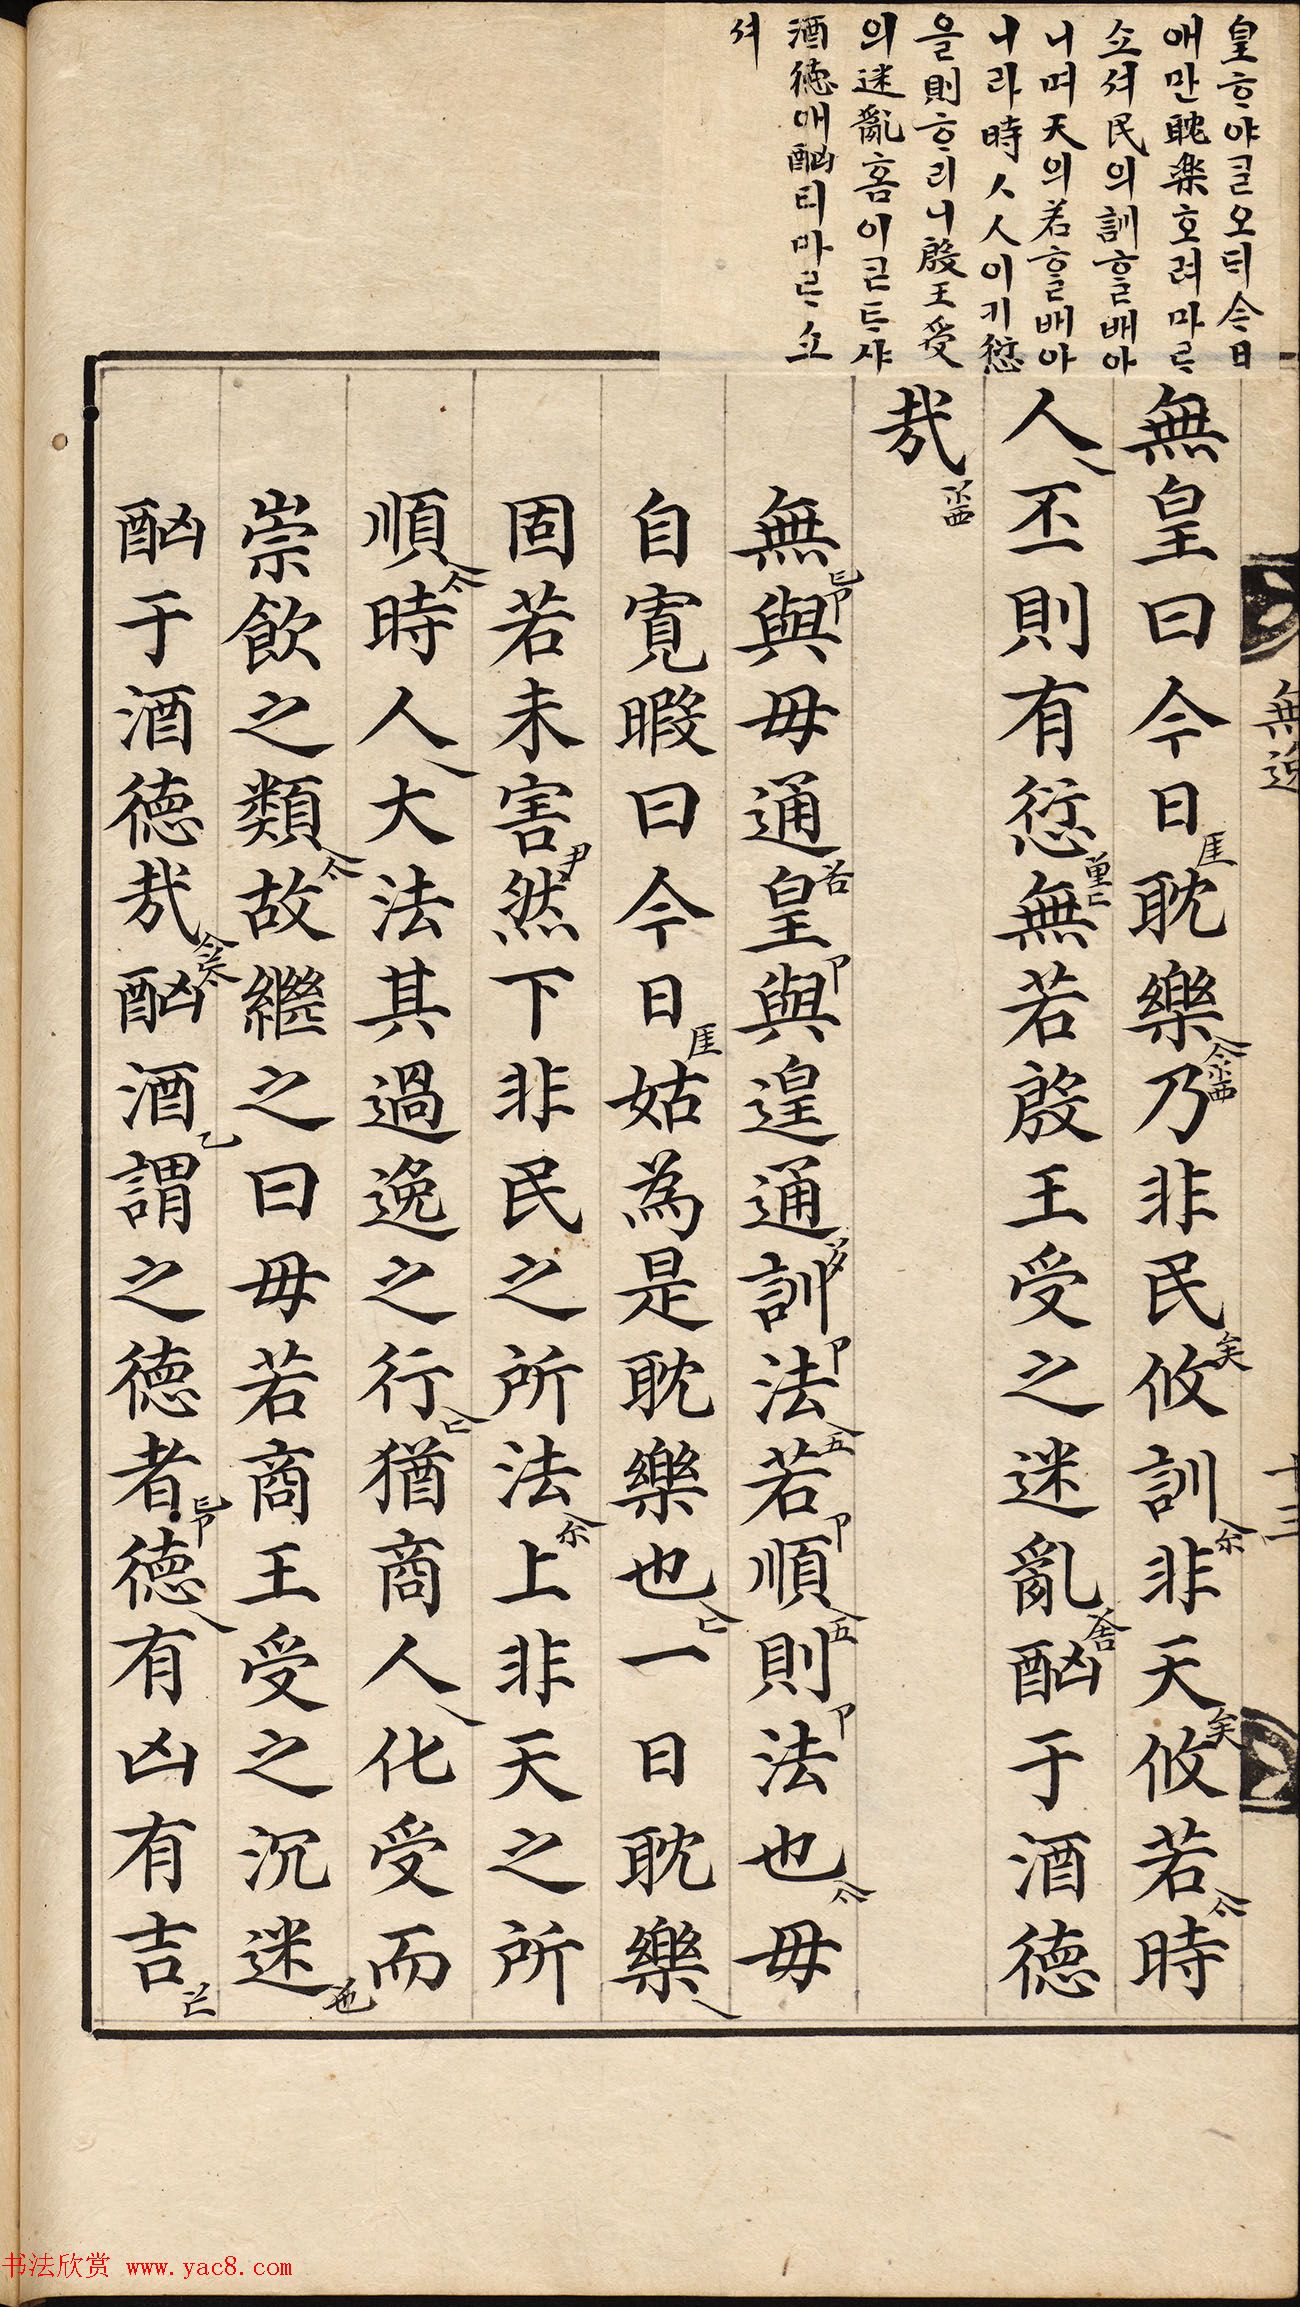 皇ᄒᆞ야ᄀᆞᆯ오ᄃᆡ今日
애만耽楽호려마ᄅᆞ
쇼셔民의訓ᄒᆞᆯ배아
니며天의若ᄒᆞᆯ배아
니라時人人이기愆
을則ᄒᆞ리니殷王受
의迷亂홈이ᄀᆞᆮᄐᆞ샤
酒德애酗티마ᄅᆞ쇼
셔
無皇曰今日耽樂乃非民攸訓非天攸若時
人丕則有愆無若殷王受之迷亂酗于酒德
哉
無與毋通皇與遑通訓法若順則法也毋
自寛暇曰今日姑為是耽樂也一日耽樂
固若未害然下非民之所法上非天之所
順時人大法其過逸之行猶商人化受而
崇飲之類故繼之曰毋若商王受之沉迷
酗于酒德哉酗酒謂之德者德有凶有吉
無逸
十三
书法欣赏 www.yac8.com